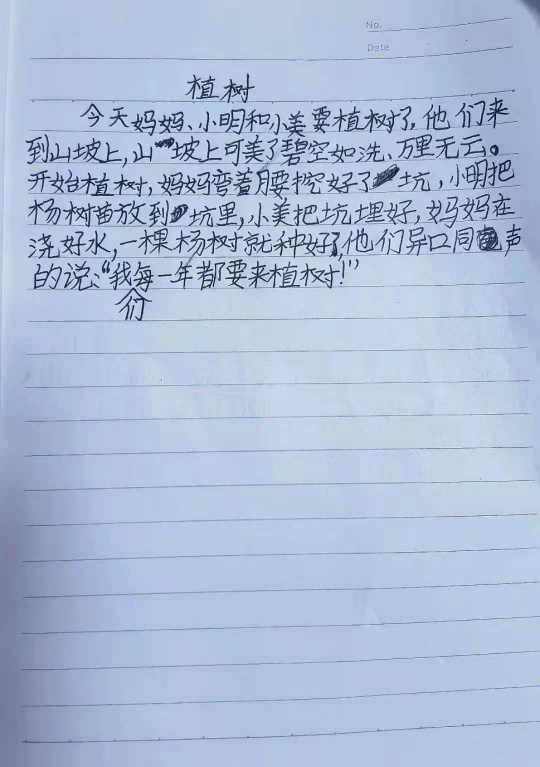 No.
Date
植树
今天妈妈、小明和小美要植树了,他们来
到山坡上,山坡上可美了碧空如洗、万里无云。
开始植树,妈妈弯着腰挖好了坑,小明把
杨树苗放到坑里,小美把坑埋好,妈妈在
浇好水,一棵杨树就种好了,他们异口同声
的说:“我们每一年都要来植树!”